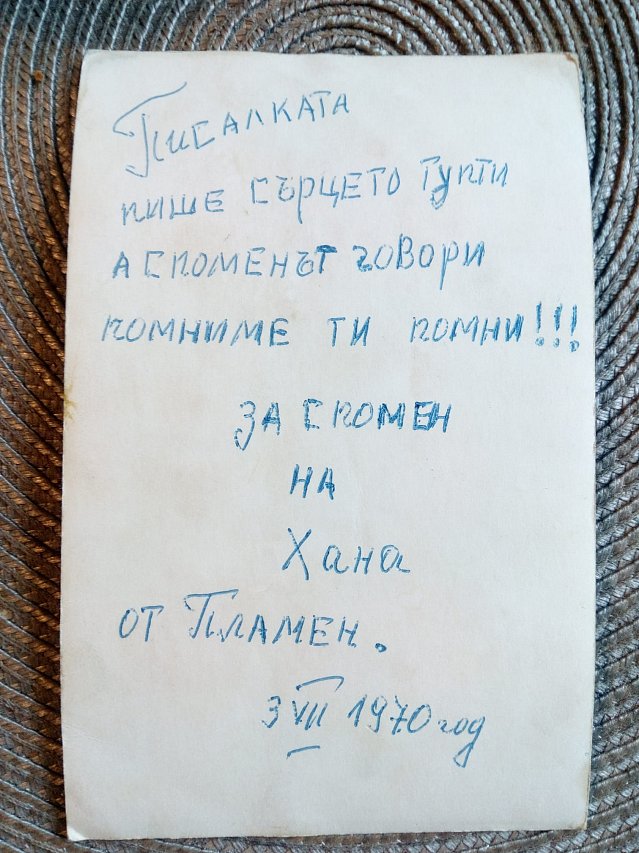 Писалката
пише сърцето тупти
а споменът говори
помниме ти помни!!!
За спомен
на
Хана
от Пламен.
3 VII 1970 год